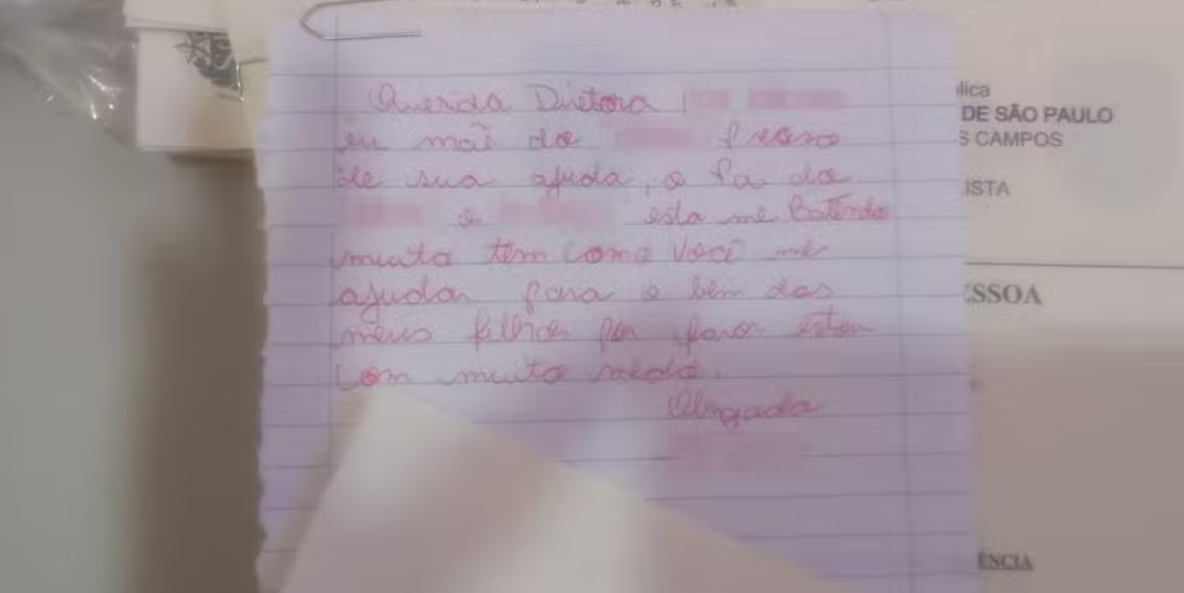 Querida Diretora
eu mãe do preciso
de sua ajuda, o Pai do
e esta me Batendo
muito tem como você me
ajudar para o bem dos
meus filhos por favor estou
com muito medo.
Obrigada
lica
DE SÃO PAULO
S CAMPOS
ISTA
ESSOA
ÊNCIA